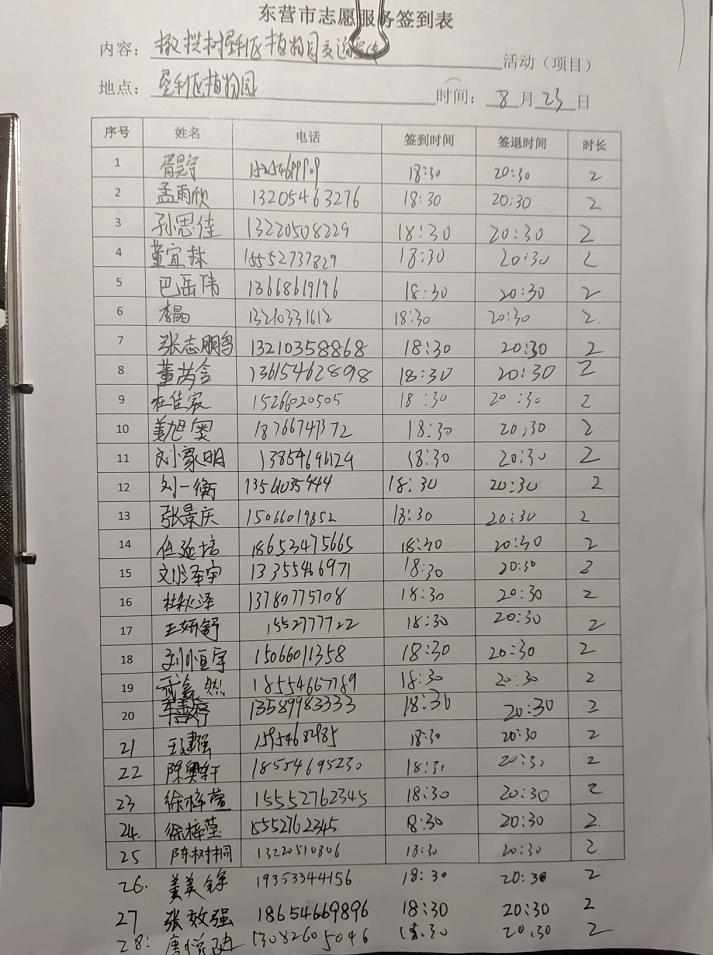 东营市志愿服务签到表
内容：橄榄树垦利区植物园 活动（项目）
地点：垦利区植物园 时间：8月23日
序号 姓名 电话 签到时间 签退时间 时长
1 18:30 20:30 2
2 孟雨欣 13205463276 18:30 20:30 2
3 孙思佳 13220508229 18:30 20:30 2
4 董宜林 15552737829 18:30 20:30 2
5 巴岳伟 13668619196 18:30 20:30 2
6 李晶 13210331612 18:30 20:30 2
7 张志鹏 13210358868 18:30 20:30 2
8 董芮含 13615462898 18:30 20:30 2
9 杜佳宸 1526020505 18:30 20:30 2
10 姜旭奥 18766741372 18:30 20:30 2
11 刘家明 18:30 20:30 2
12 刘一衡 18:30 20:30 2
13 张景庆 15066019852 18:30 20:30 2
14 任延培 18653475665 18:30 20:30 2
15 刘泽宇 13355466971 18:30 20:30 2
16 杜秋泽 13780775708 18:30 20:30 2
17 王妍舒 1552777722 18:30 20:30 2
18 刘恒宇 15066011358 18:30 20:30 2
19 18554667789 18:30 20:30 2
20 13589983333 18:30 20:30 2
21 王建强 15954682985 18:30 20:30 2
22 陈奥轩 18554695230 18:30 20:30 2
23 徐梓萱 15552762345 18:30 20:30 2
24. 徐梓莹 15552762345 8:30 20:30 2
25 陈树桐 13220510806 18:30 20:30 2
26. 姜美锦 19353344156 18:30 20:30 2
27 张效强 18654669896 18:30 20:30 2
28: 13082605046 18:30 20:30 2